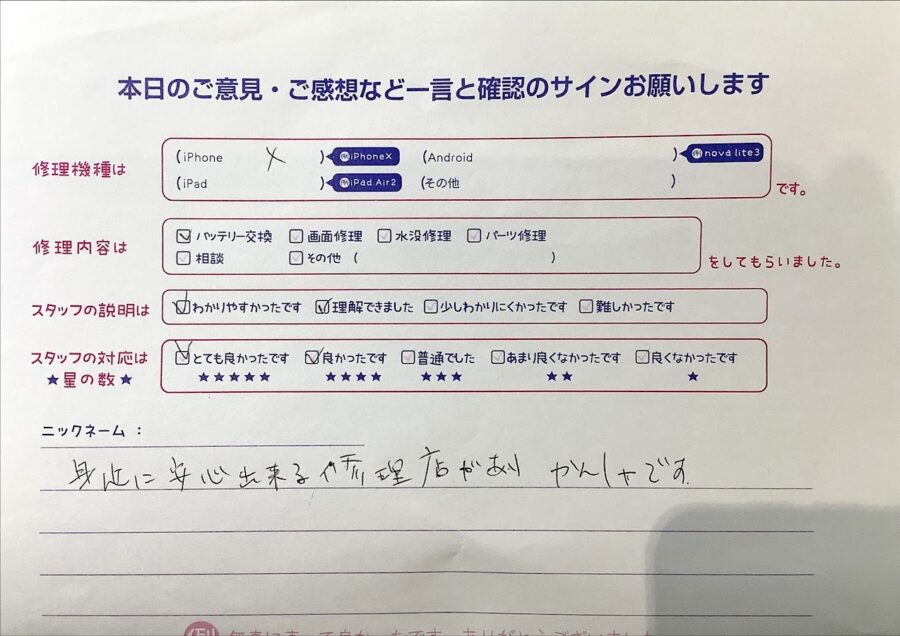 本日のご意見・ご感想など一言と確認のサインお願いします
修理機種は (iPhone X ) 例 iPhoneX (Android ) 例 nova lite3
(iPad ) 例 iPad Air2 (その他 ) です。
修理内容は バッテリー交換 画面修理 水没修理 パーツ修理
相談 その他 ( ) をしてもらいました。
スタッフの説明は わかりやすかったです 理解できました 少しわかりにくかったです 難しかったです
スタッフの対応は とても良かったです 良かったです 普通でした あまり良くなかったです 良くなかったです
★星の数★ ★★★★★ ★★★★ ★★★ ★★ ★
ニックネーム：
身近に安心出来る修理店があり かんしゃです